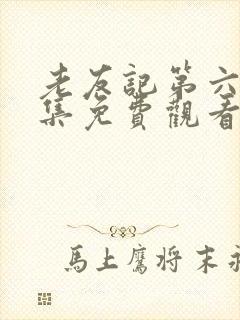 老友記第六
集免費觀看
馬上鷹将末